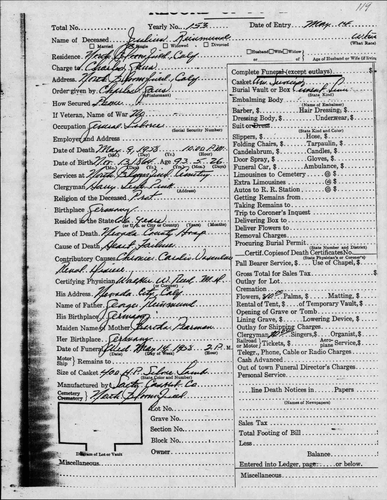 119
RECORD
Total No. Yearly No. 153 Date of Entry May 14
Name of Deceased Julius Reimund White
Married Single Widowed Divorced
Husband, Wife, Widow (What Race)
Residence North Bloomfield, Caly
or Age of Husband or Wife (if living)
Charge to Charles
Address North Bloomfield, Caly
Order given by Charles
How Secured Phone
If Veteran, War of No
Occupation General Laborer
(Social Security Number)
Employer and Address
Date of Death May 9, 1953 10:20 P.M.
Date of Birth Nov. 13, 1860 Age 92. 5. 26
Services at North Bloomfield Cemetery
Clergyman Harry
Religion of the Deceased Prot
Birthplace Germany
Resided in the State Years
Place of Death Nevada County Hosp.
Cause of Death Heart Failure
Contributory Causes Chronic Cardio Vascular
Renal Disease
Certifying Physician W. Reed M.D.
His Address Nevada City Caly
Name of Father George Reimund
His Birthplace Germany
Maiden Name of Mother Bertha
Her Birthplace Germany
Date of Funeral Wed May 14, 1953 2 P. M.
Motor Ship Remains to
Size of Casket 400 H.P. Silver
(State Color and Number)
Manufactured by Casket Co.
Cemetery Crematory North Bloomfield
Lot No.
Grave No.
Section No.
Block No.
Owner
Diagram of Lot or Vault
Miscellaneous
Complete Funeral (except outlays) $
Casket
Burial Vault or Box Cement
(State Kind)
Embalming Body
(Name of Embalmer)
Barber, $ Hair Dressing, $
Dressing Body, $ Underwear, $
Suit or Dress
(State Kind and Color)
Slippers, $ Hose, $
Folding Chairs, $ Tarpaulin, $
Candelabrum, $ Candles, $
Door Spray, $ Gloves, $
Funeral Car, $ Ambulance, $
Limousines to Cemetery @ $
Extra Limousines @ $
Autos to R. R. Station @ $
Getting Remains from
Taking Remains to
Trip to Coroner's Inquest
Delivering Box to
Deliver Flowers to
Removal Charges
Procuring Burial Permit
(State Number and District)
Certif. Copies of Death Certificate No.
Pall Bearer Service, $ Use of Chapel, $
Gross Total for Sales Tax $
Outlay for Lot
Cremation
Flowers, $ Palms, $ Matting, $
Rental of Tent, $ of Temporary Vault, $
Opening of Grave or Tomb
Lining Grave, $ Lowering Device, $
Outlay for Shipping Charges
Clergyman, $ Singers, $ Organist, $
Railroad or Motor Tickets, $ Aeroplane Service, $
Telegr., Phone, Cable or Radio Charges
Cash Advanced
Out of town Funeral Director's Charges
Personal Service
line Death Notices in Papers
(Names of Newspapers)
Sales Tax $
Total Footing of Bill $
Less $
Balance $
Entered into Ledger, page or below.
Miscellaneous: